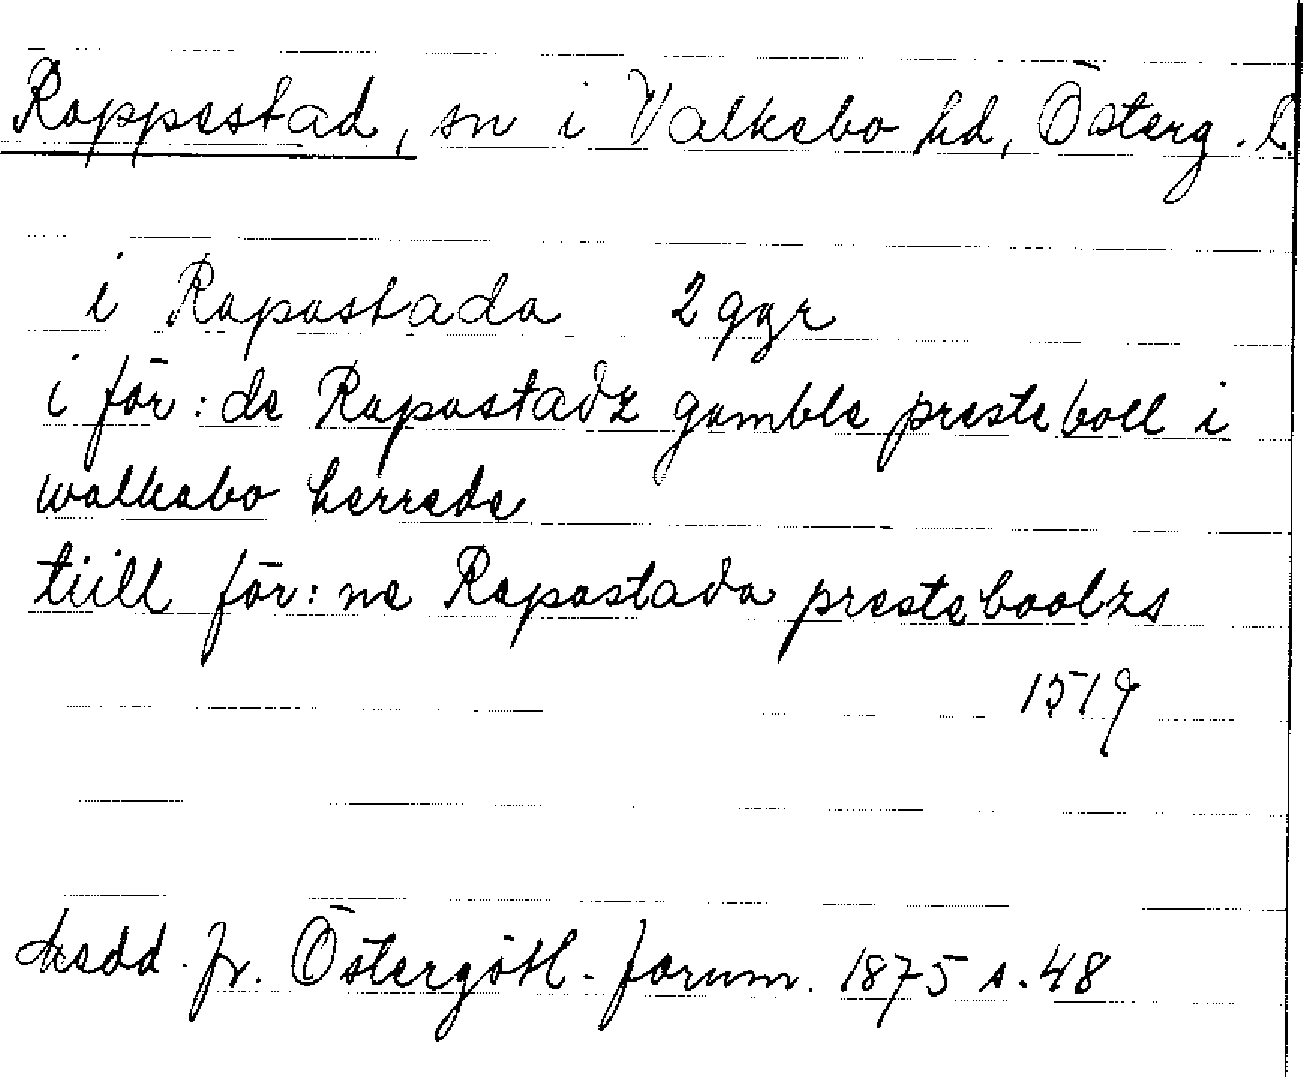 Rappestad, sn i Valkebo hd, Österg. l.
i Rapastada 2 ggr
i för:de Rapastadz gamble presteboll i
walkabo herrede
tiill för:ne Rapastada presteboolzs
1519
Medd. fr. Östergötl. fornm. 1875 s. 48